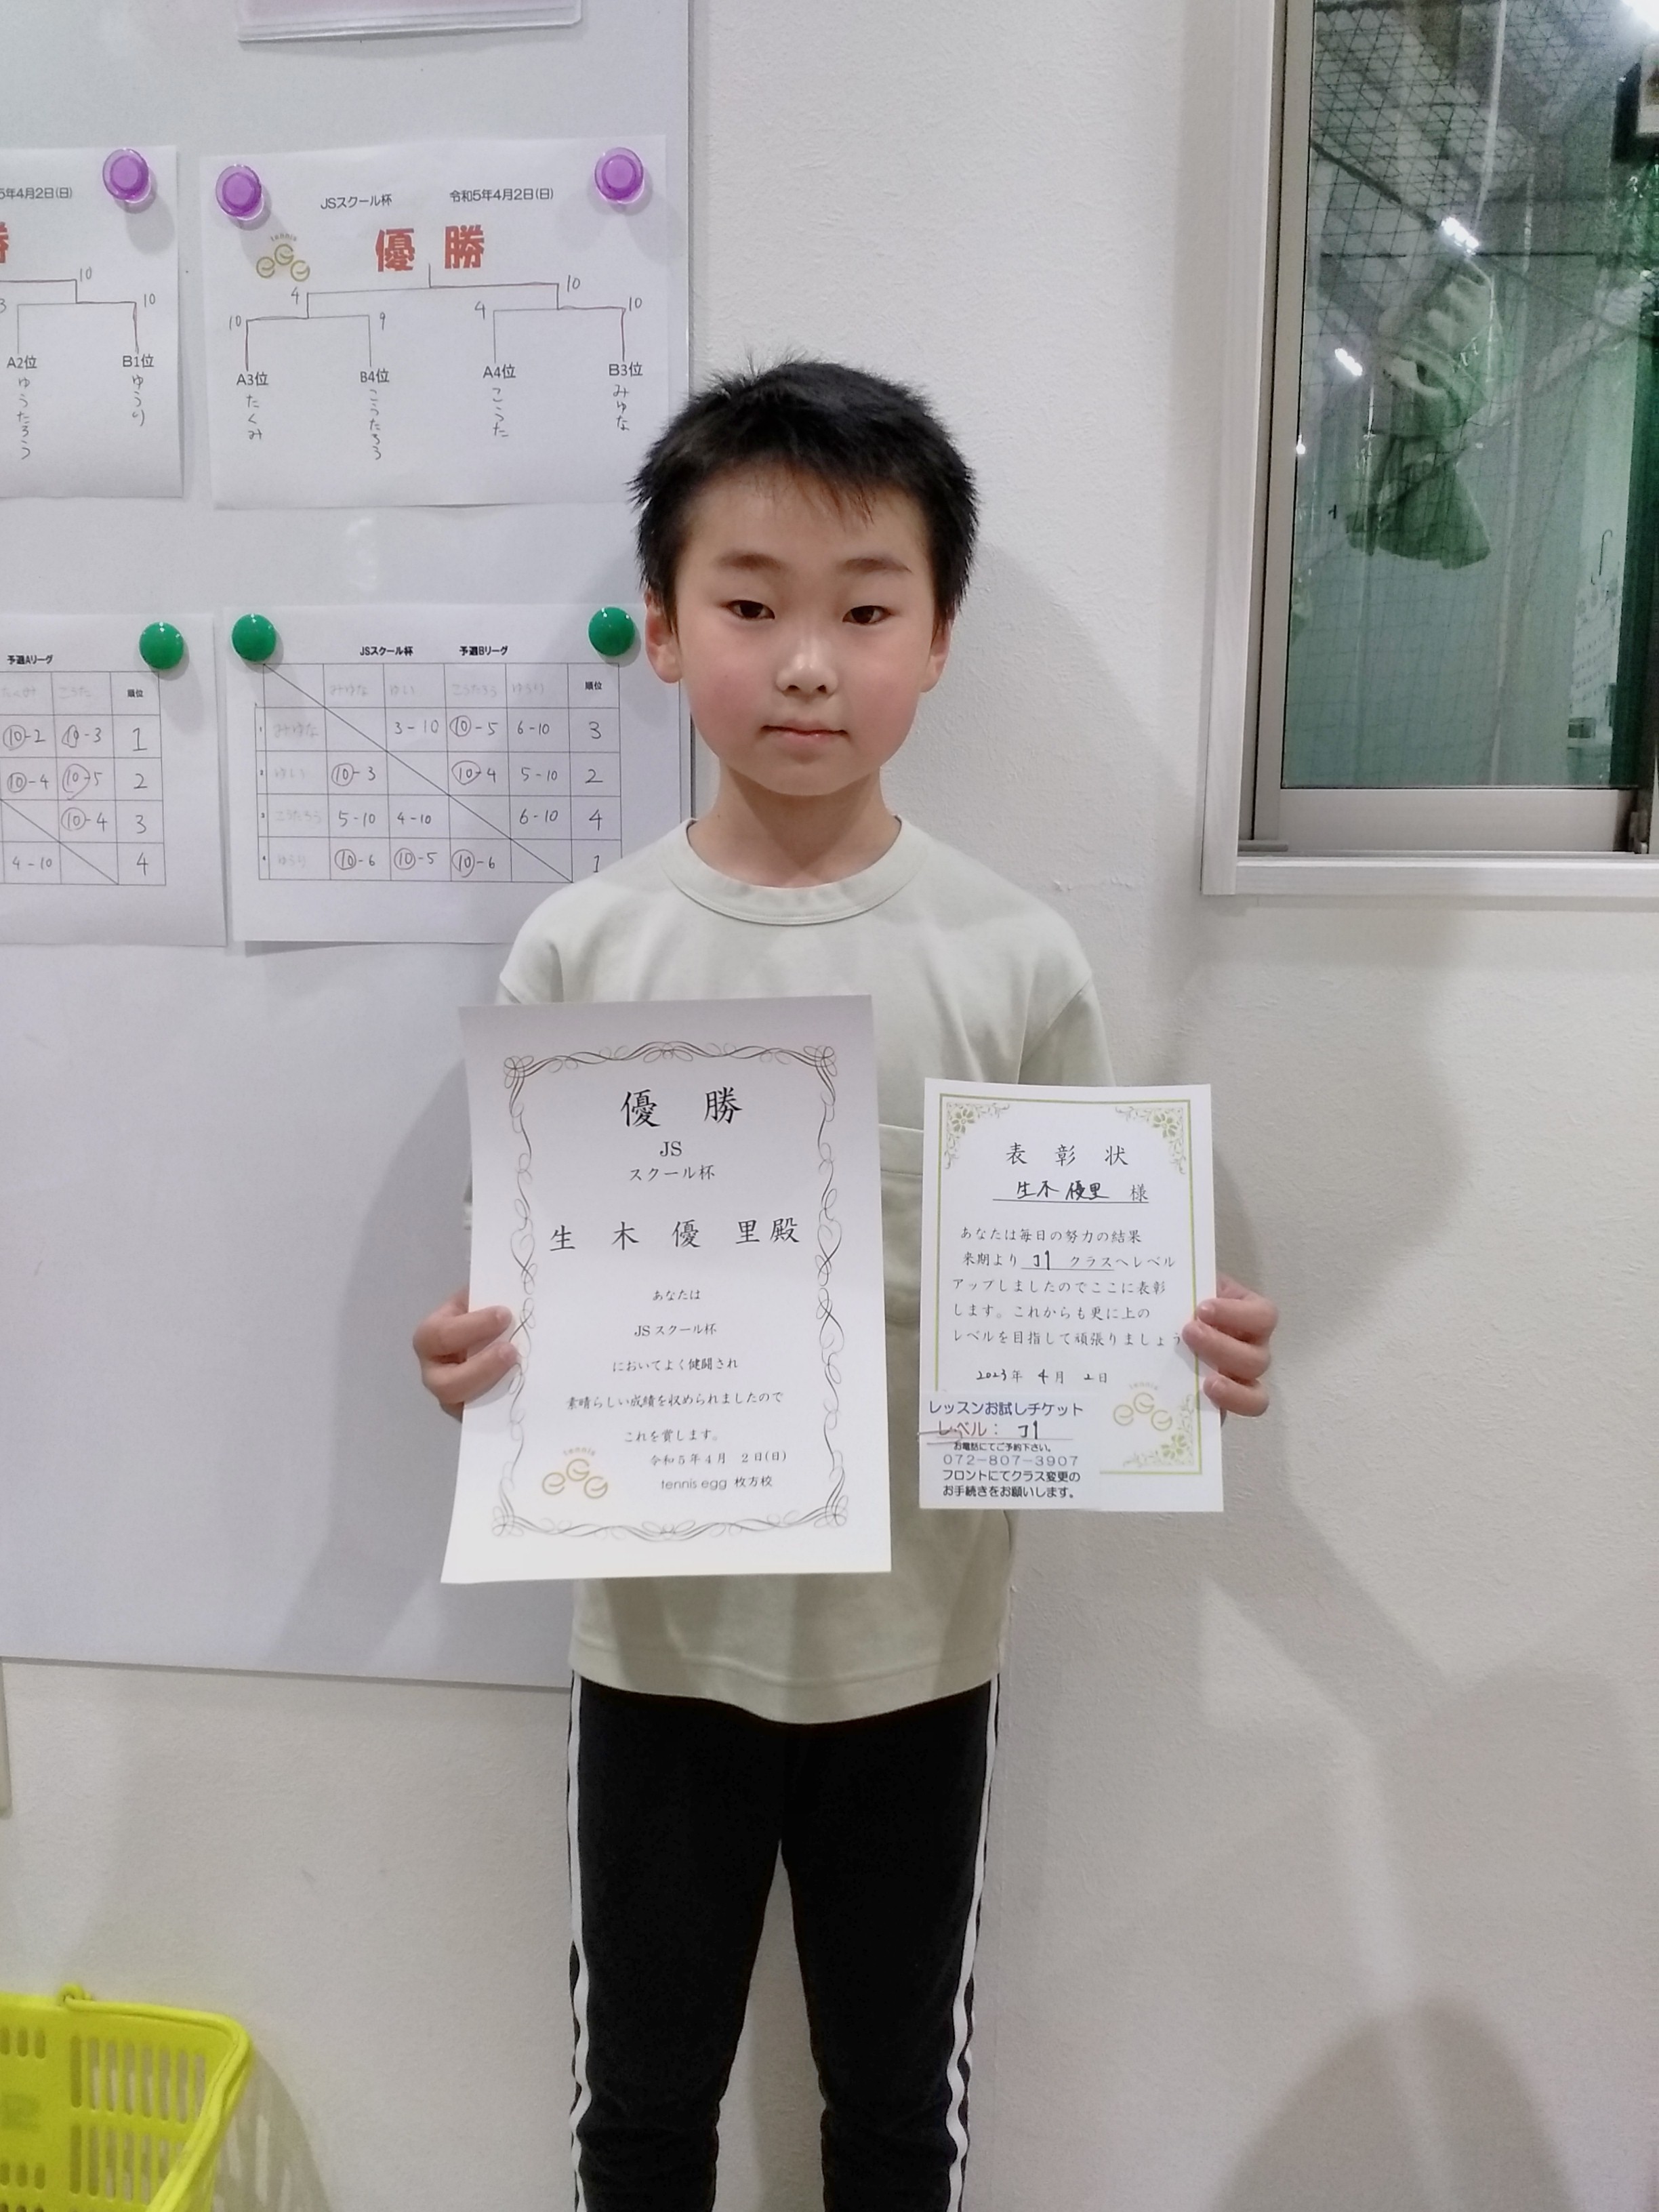 5年4月2日(日)
勝
10
3
10
A2位
B1位
ゆうたろう
ゆうり
JSスクール杯 令和5年4月2日(日)
tennis
egg
優 勝
4 10
10 9 4 10
A3位 B4位 A4位 B3位
たくみ こうたろう こうた みゆな
予選Aリーグ
たくみ こうた 順位
⑩-2 ⑩-3 1
⑩-4 ⑩-5 2
⑩-4 3
4-10 4
JSスクール杯 予選Bリーグ
みゆな ゆい こうたろう ゆうり 順位
1 みゆな 3-10 ⑩-5 6-10 3
2 ゆい ⑩-3 ⑩-4 5-10 2
3 こうたろう 5-10 4-10 6-10 4
4 ゆうり ⑩-6 ⑩-5 ⑩-6 1
優 勝
JS
スクール杯
生 木 優 里殿
あなたは
JSスクール杯
においてよく健闘され
素晴らしい成績を収められましたので
これを賞します。
令和5年4月 2日(日)
tennis
egg
tennis egg 枚方校
表 彰 状
生木 優里 様
あなたは毎日の努力の結果
来期より J1 クラスへレベル
アップしましたのでここに表彰
します。これからも更に上の
レベルを目指して頑張りましょう
2023年 4月 2日
tennis
egg
レッスンお試しチケット
レベル: J1
お電話にてご予約下さい。
072-807-3907
フロントにてクラス変更の
お手続きをお願いします。